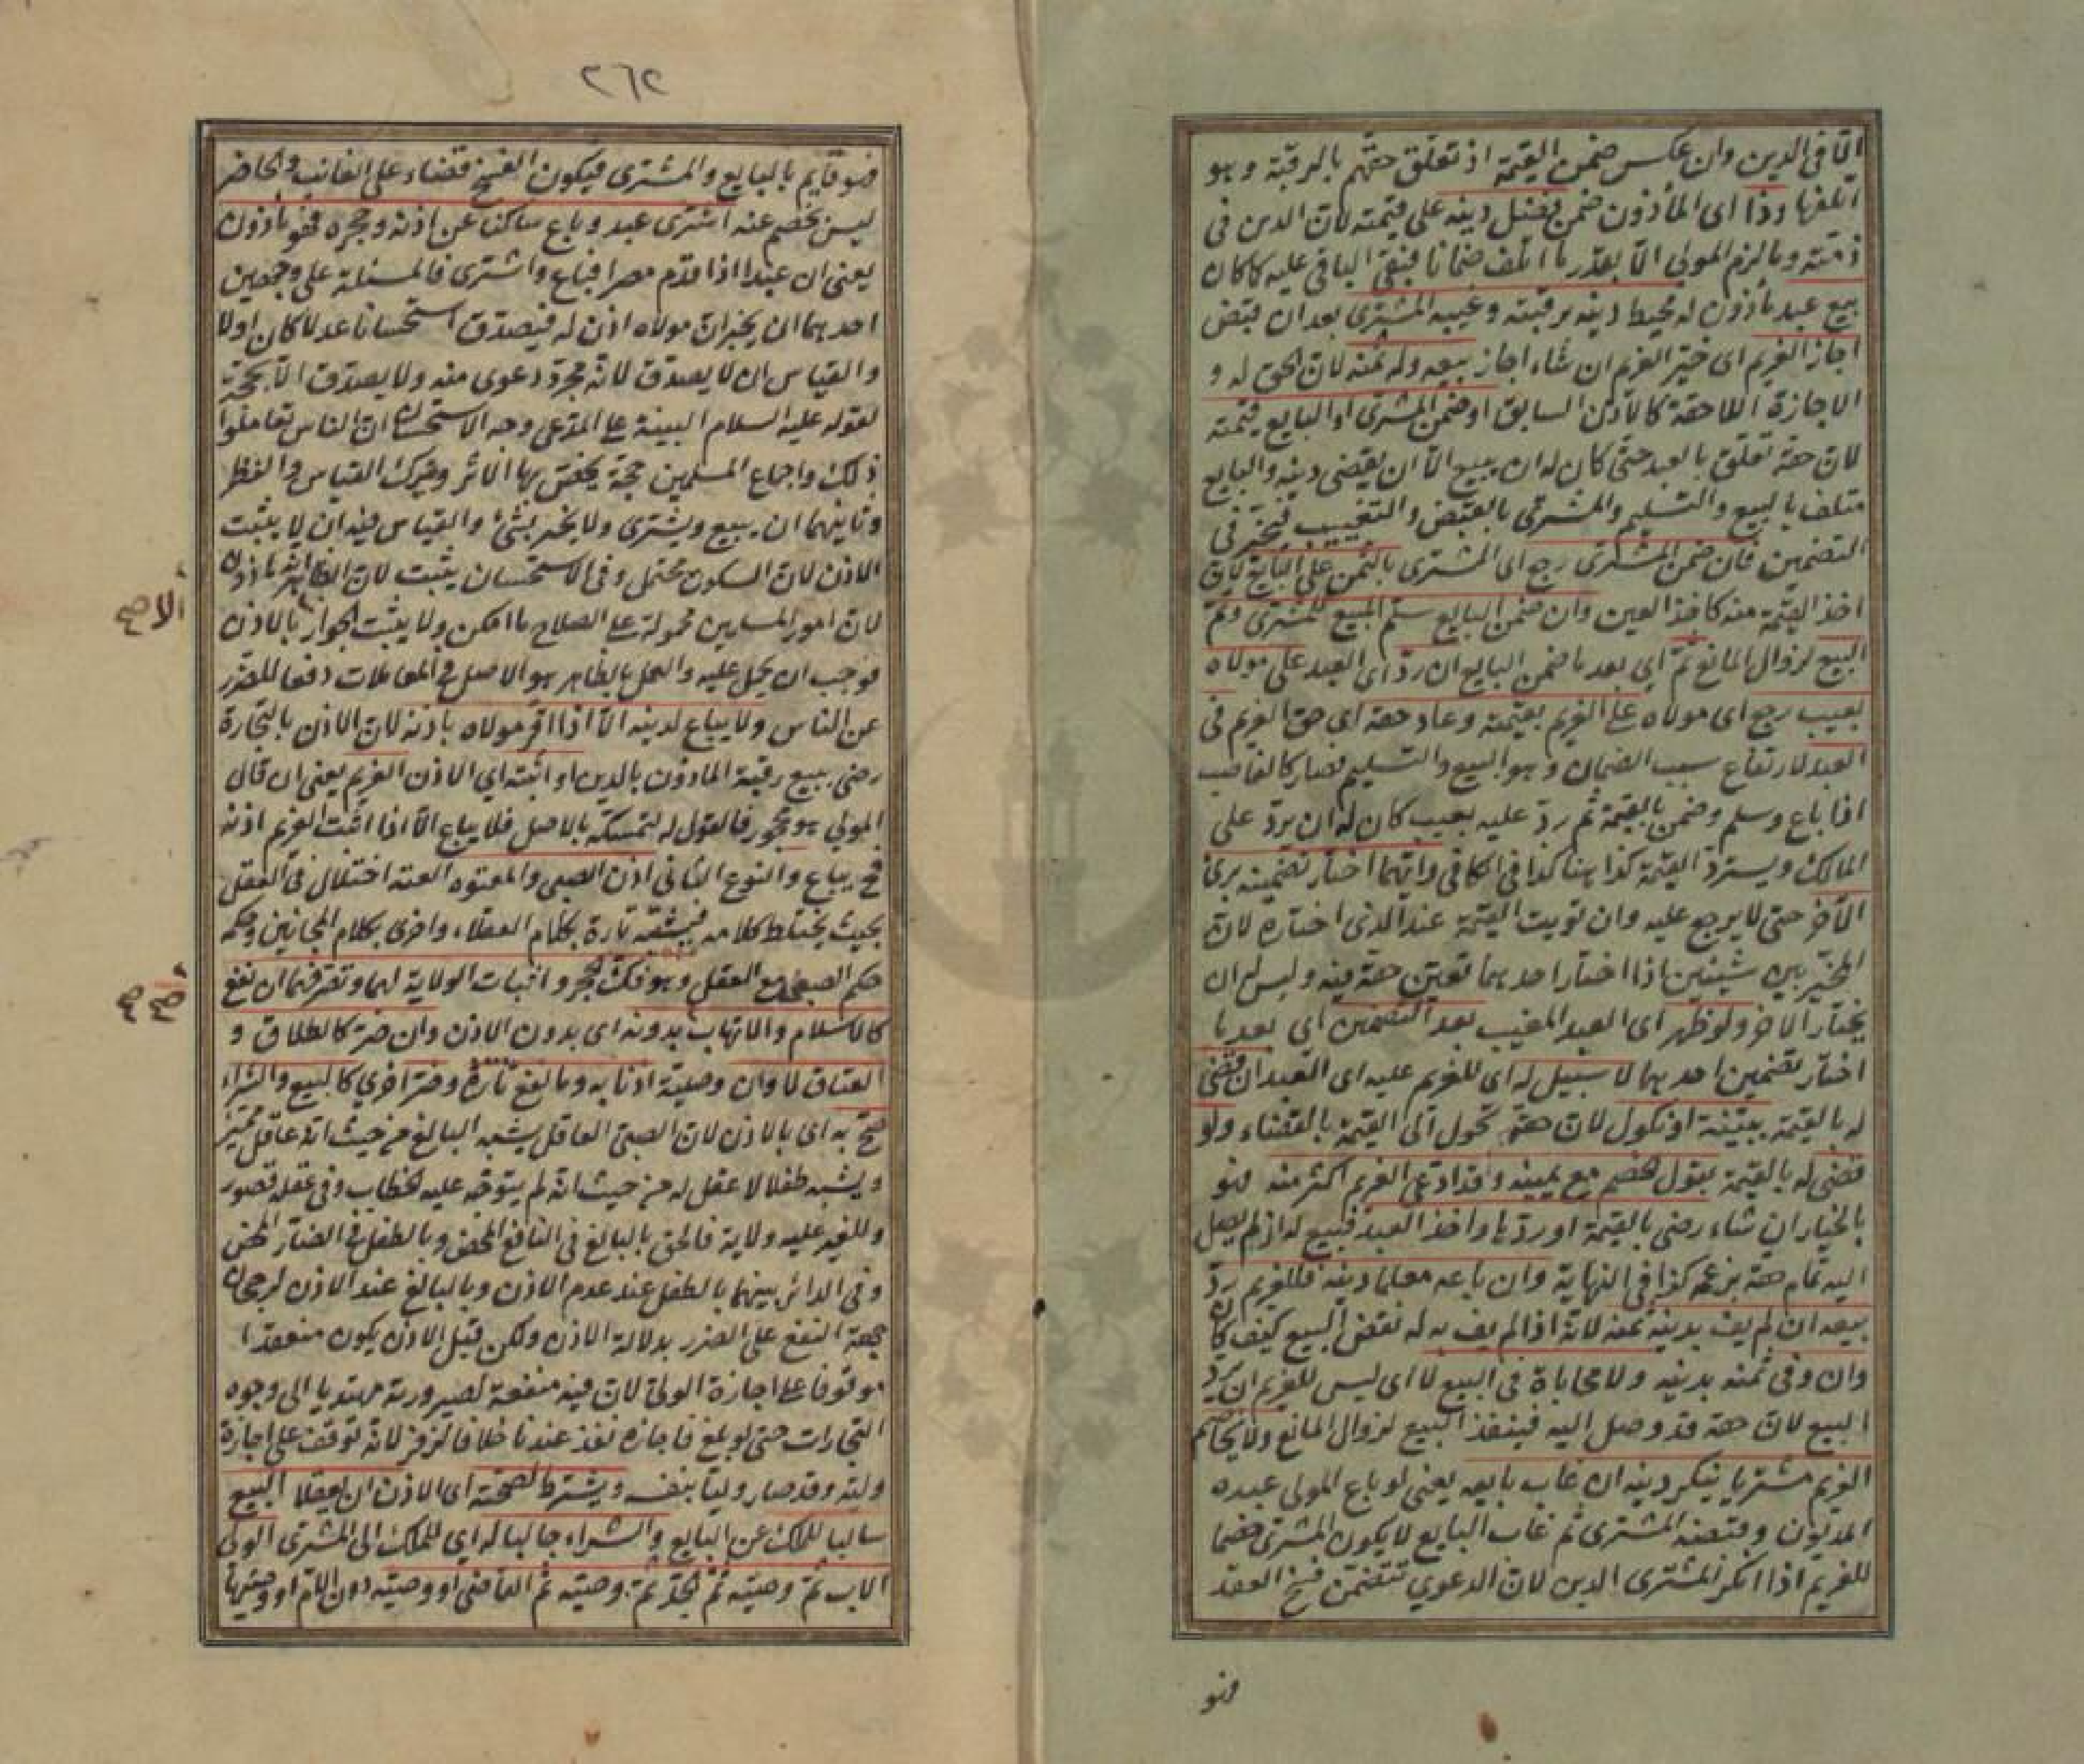 الا في الدين وان عكس ضمن القيمة اذ تعلق حقهم بالرقبة وهو
اتلفها وذا اى المأذون ضمن بفضل دينه على قيمته لان الدين فى
ذمته وما لزم المولى الا بقدر ما اتلف ضمانا فبقى الباقى عليه كما كان
بيع عبد مأذون له محيط دينه برقبته وغيبه المشترى بعد ان قبض
اجاز الغريم اى خير الغريم ان شاء اجاز بيعه وله ثمنه لان الحق له و
الاجازة اللاحقة كالاذن السابق او ضمن المشترى او البايع قيمته
لان حقه تعلق بالعبد حتى كان له ان يبيع الا ان يقضى دينه والبايع
متلف بالبيع والتسليم والمشترى بالقبض والتغييب فيخير فى
التضمين فان ضمن المشترى رجع اى المشترى بالثمن على البايع لان
اخذ القيمة منه كاخذ العين وان ضمن البايع سلم المبيع للمشترى وتم
البيع لزوال المانع ثم اى بعد ما ضمن البايع ان رد اى العبد على مولاه
بعيب رجع اى مولاه على الغريم بقيمته وعاد حقه اى حق الغريم فى
العبد لارتفاع سبب الضمان وهو البيع والتسليم فصار كالغاصب
اذا باع وسلم وضمن بالقيمة ثم رد عليه بعيب كان له ان يرد على
المالك ويسترد القيمة كذا هنا كذا فى الكافى وايهما اختار تضمينه برئ
الآخر حتى لا يرجع عليه وان تويت القيمة عند الذى اختاره لان
المخير بين شيئين اذا اختار احدهما تعين حقه فيه وليس له ان
يختار الآخر ولو ظهر اى العبد المغيب بعد التضمين اى بعد ما
اختار تضمين احدهما لا سبيل له اى للغريم عليه اى العبد ان قضى
له بالقيمة ببينة او نكول لان حقه تحول الى القيمة بالقضاء ولو
قضى له بالقيمة بقول الخصم مع يمينه وقد ادعى الغريم اكثر منه فهو
بالخيار ان شاء رضى بالقيمة او ردها واخذ العبد فبيع له اذ لم يصل
اليه تمام حقه بزعمه كذا فى النهاية وان باعه معلما دينه فللغريم رد
بيعه ان لم يف بدينه ثمنه لانه اذا لم يف به له نقض البيع كيف كان
وان وفى ثمنه بدينه ولا محاباة فى البيع لا اى ليس للغريم ان يرد
البيع لان حقه قد وصل اليه فينفذ البيع لزوال المانع ولا يخاصم
الغريم مشتريا ينكر دينه ان غاب بايعه يعنى لو باع المولى عبده
المديون وقبضه المشترى ثم غاب البايع لا يكون المشترى خصما
للغريم اذا انكر المشترى الدين لان الدعوى تتضمن فسخ العقد
وهو
٢٦٢
وهو قايم بالبايع والمشترى فيكون الفسخ قضاء على الغائب والحاضر
ليس بخصم عنه اشترى عبد وباع ساكتا عن اذنه وحجره فهو مأذون
يعنى ان عبدا اذا قدم مصرا فباع واشترى فالمسئلة على وجهين
احدهما ان يخبر ان مولاه اذن له فيصدق استحسانا عدلا كان اولا
والقياس ان لا يصدق لانه مجرد دعوى منه ولا يصدق الا بحجة
لقوله عليه السلام البينة على المدعى وجه الاستحسان ان الناس تعاملوا
ذلك واجماع المسلمين حجة يخص بها الاثر ويترك القياس والنظر
وثانيهما ان يبيع ويشترى ولا يخبر بشئ والقياس فيه ان لا يثبت
الاذن لان السكوت محتمل وفى الاستحسان يثبت لان الظاهر انه مأذون
لان امور المسلمين محمولة على الصلاح ما امكن ولا يثبت الجواز الا بالاذن
فوجب ان يحمل عليه والعمل بالظاهر هو الاصل فى المعاملات دفعا للضرر
عن الناس ولا يباع لدينه الا اذا اقر مولاه باذنه لان الاذن بالتجارة
رضى ببيع رقبة المأذون بالدين او اثبته اى الاذن الغريم يعنى ان قال
المولى هو محجور فالقول له لتمسكه بالاصل فلا يباع الا اذا اثبت الغريم اذنه
فح يباع والنوع الثانى اذن الصبى والمعتوه العته اختلال فى العقل
بحيث يختلط كلامه فيشبه تارة بكلام العقلاء واخرى بكلام المجانين وحكمه
حكم الصبى مع العقل وهو فك الحجر واثبات الولاية لهما وتصرفهما ان نفع
كالاسلام والاتهاب بدونه اى بدون الاذن وان ضر كالطلاق و
العتاق لا وان وصلية اذنا به وما نفع تارة وضر اخرى كالبيع والشراء
صح به اى بالاذن لان الصبى العاقل يشبه البالغ من حيث انه عاقل مميز
ويشبه طفلا لا عقل له من حيث انه لم يتوجه عليه الخطاب وفى عقله قصور
وللغير عليه ولاية فالحق بالبالغ فى النافع المحض وبالطفل فى الضار المحض
وفى الدائر بينهما بالطفل عند عدم الاذن وبالبالغ عند الاذن لرجحان
جهة النفع على الضرر بدلالة الاذن ولكن قبل الاذن يكون منعقدا
موقوفا على اجازة الولى لان فيه منفعة لصيرورته مهتديا الى وجوه
التجارات حتى لو بلغ فاجازه نفذ عندنا خلافا لزفر لانه توقف على اجازة
وليه وقد صار وليا بنفسه ويشترط لصحته اى الاذن ان يعقلا البيع
سالبا للملك عن البايع والشراء جالبا له اى للملك الى المشترى الولى
الاب ثم وصيه ثم الجد ثم وصيه ثم القاضى او وصيه دون الام او وصيها